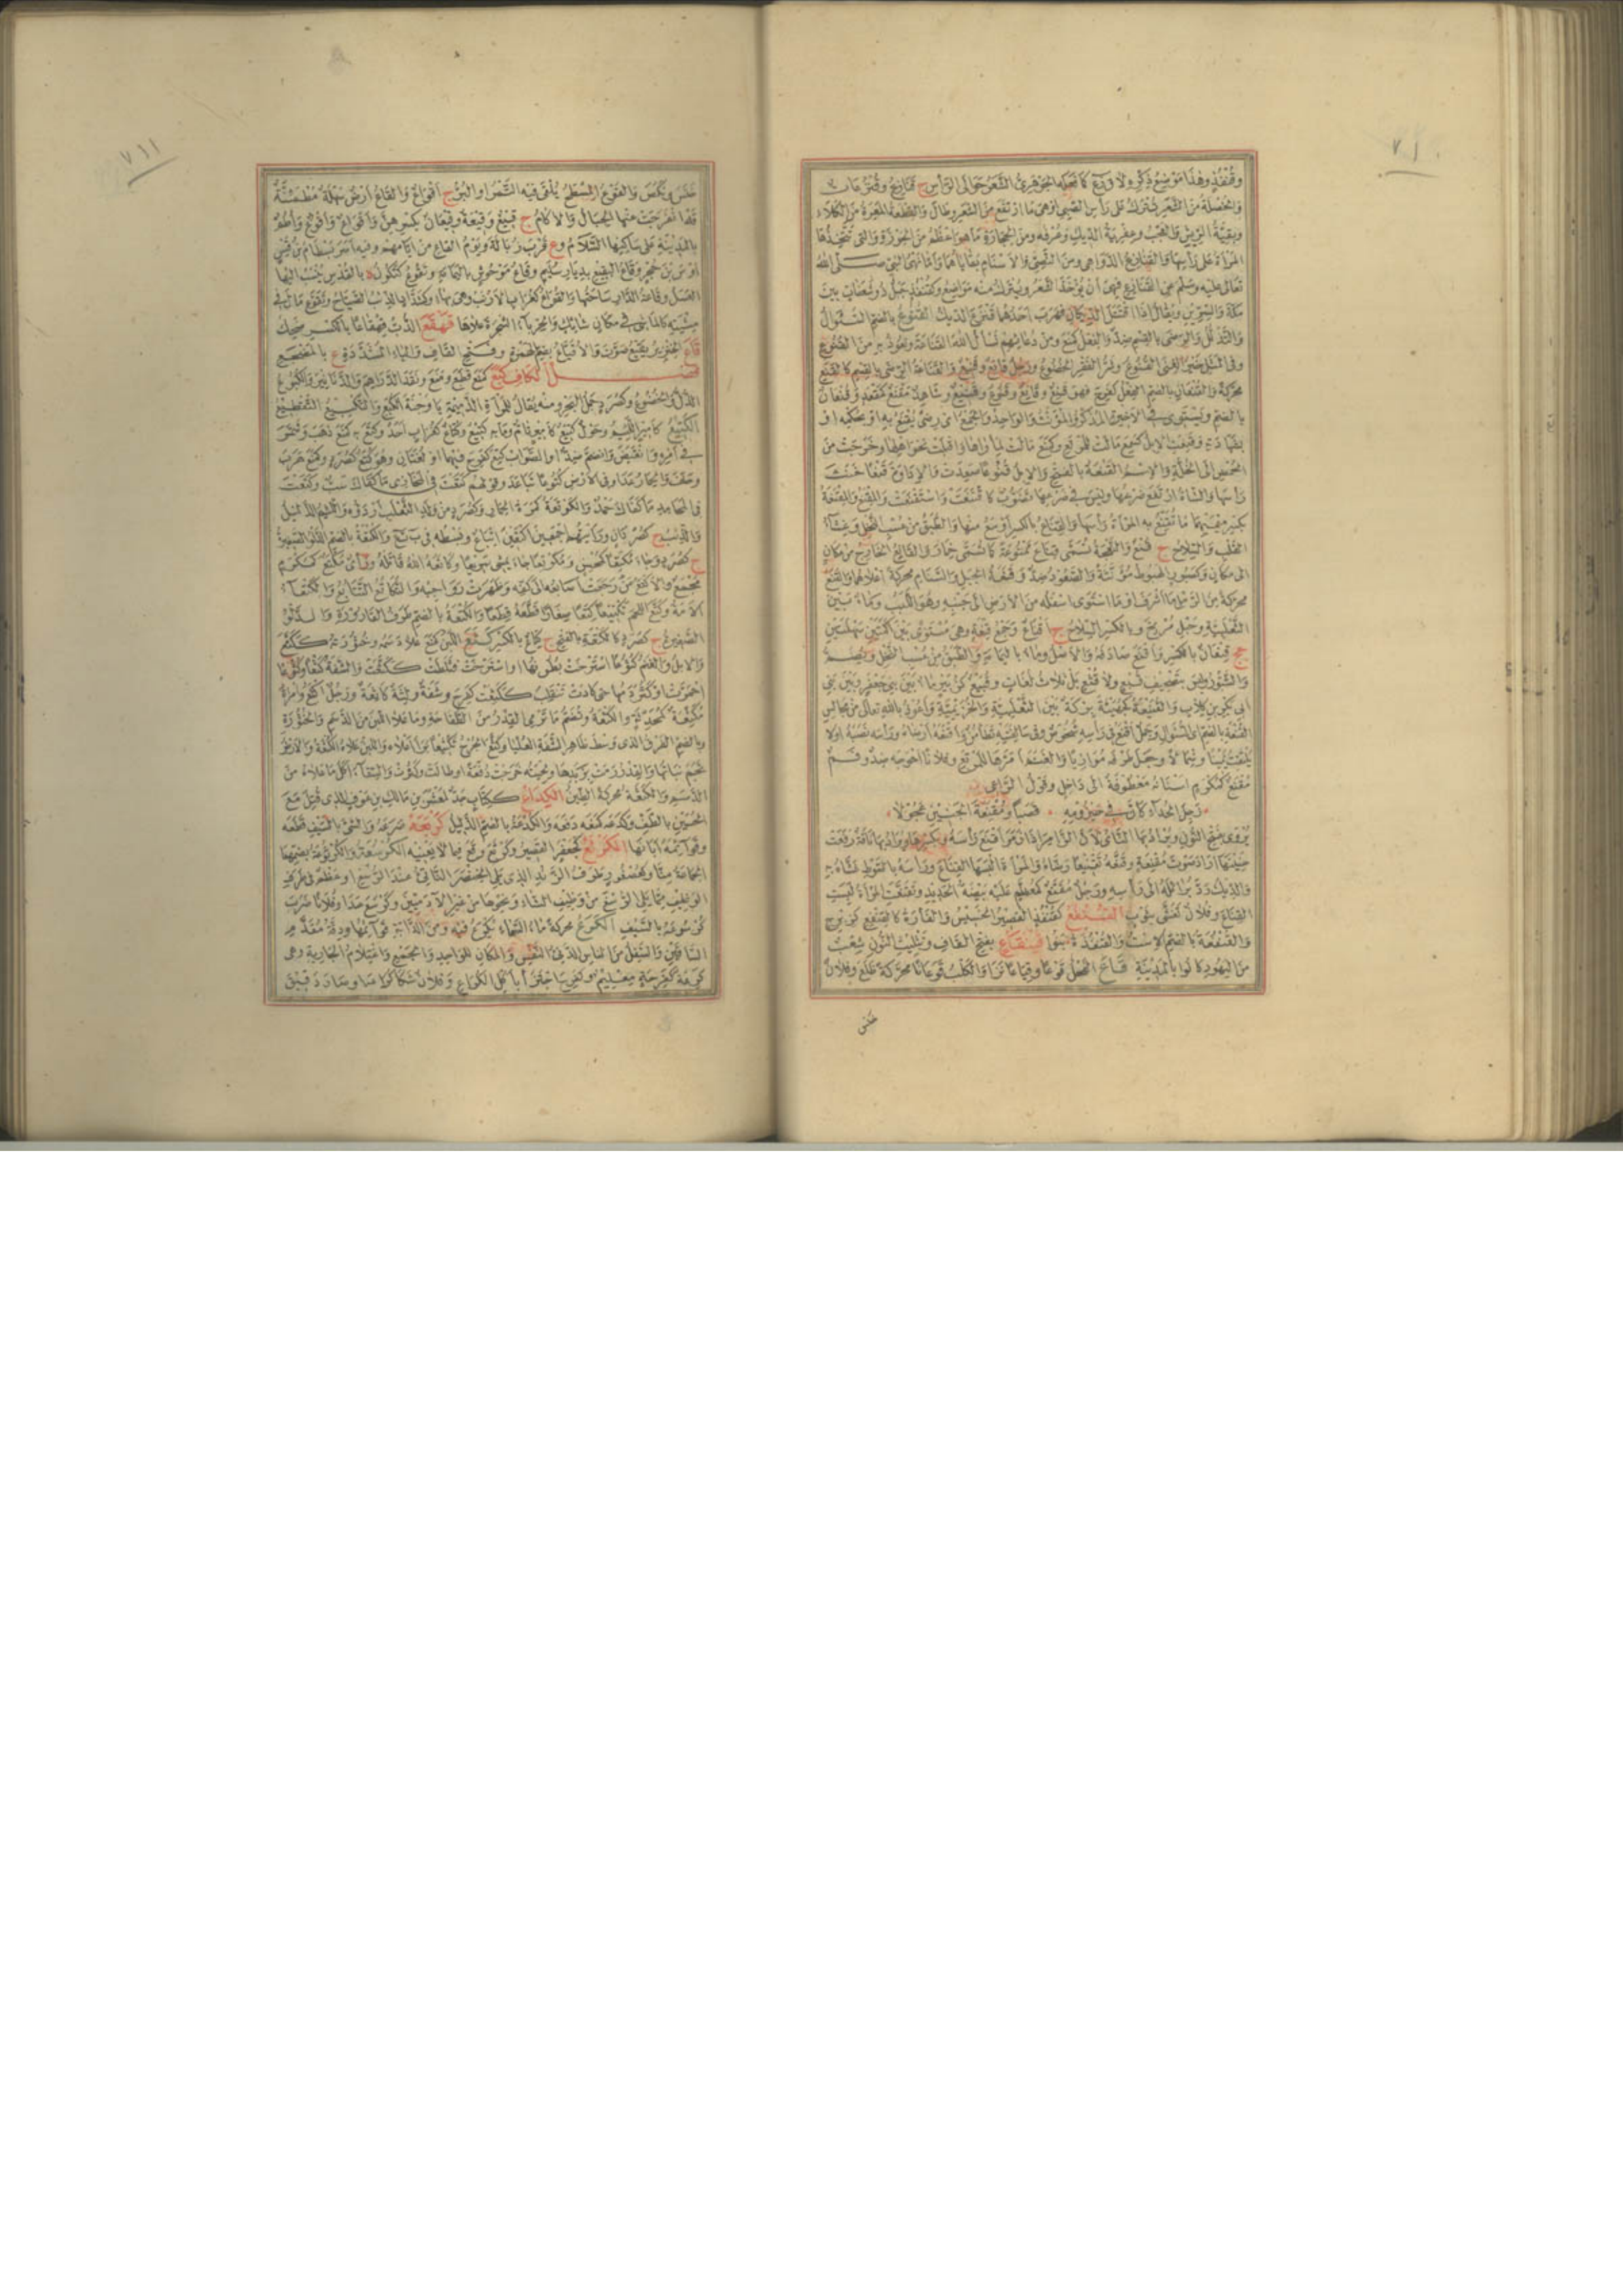 ٧١٠
وقنفذ وهذا موضع ذكره لا ق ز ع كما فعله الجوهري الشعر حوالى الرأس ج قنازع وقنزعات
والخصلة من الشعر تترك على رأس الصبي او هي ما ارتفع من الشعر وطال والقطعة المعرة من الكلاء
وبقية الريش والعجب وعفرية الديك وعرفه ومن الحجارة ما هو اعظم من الجوزة والتى تتخذها
المرأة على رأسها والقنازع الدواهى ومن النصي والاسنام بقاياهما واما نهى النبي صلى الله
تعالى عليه وسلم عن القنازع فهى ان يؤخذ الشعر ويترك منه مواضع وكقنفذ جبل ذو شعفات بين
مكة والسرين ويقال اذا اقتتل الديكان فهرب احدهما قنزع الديك القنوع بالضم السؤال
والتذلل والرضى بالقسم ضد والفعل كمنع ومن دعائهم نسأل الله القناعة ونعوذ به من القنوع
وفى المثل خير الغنى القنوع وشر الفقر الخضوع ورجل قانع وقنيع والقناعة الرضى بالقسم كالقنع
محركة والقنعان بالضم الفعل كفرح فهو قنع وقانع وقنوع وقنيع وشاهد مقنع كمقعد وقنعان
بالضم ويستوى فى الاخيرة المذكر والمؤنث والواحد والجمع اى رضى يقنع به او بحكمه او
بشهادته وقنعت الابل كسمع مالت للمرتع وكمنع مالت لمأواها واقبلت نحو اهلها وخرجت من
الحمض الى الخلة والاسم القنعة بالفتح والابل قنوعا صعدت والاداوة قنعا خنث
رأسها والشاة ارتفع ضرعها وليس فى ضرعها تصوب كاقنعت واستقنعت والمقنع والمقنعة
بكسر ميمهما ما تقنع به المرأة رأسها والقناع بالكسر اوسع منها والطبق من عسب النخل وغشاء
القلب والسلاح ج قنع والنعجة تسمى قناع ممنوعة كما تسمى خمار والقانع الخارج من مكان
الى مكان وكصبور الهبوط مؤنثة والصعود ضد وقنعة الجبل والسنام محركة اعلاهما والقنع
محركة من الرمل ما اشرف او ما استوى اسفله من الارض الى جنبه وهو اللبب وماء بين
الثعلبية وحبل مربخ وبالكسر السلاح ج اقناع وجمع قنعة وهى مستوى بين اكمتين سهلتين
جج قنعان بالكسر واقنع صادفه والاصل وماء باليمامة والطبق من عسب النخل ويضم
والشبور وليس بتصحيف قبع ولا قثع بل ثلاث لغات وقنيع كزبير ماء بين بنى جعفر وبين بنى
ابى بكر بن كلاب والقنيعة كجهينة بركة بين الثعلبية والخزيمية واعوذ بالله تعالى من مجالس
القنعة بالضم اى السؤال وجمل اقنع فى رأسه شخوص وفى سالفته تطامن واقنعه ارضاه ورأسه نصبه او لا
يلتفت يمينا وشمالا وجعل طرفه موازيا والغنم امرها للمرتع وفلانا احوجه ضد وفم
مقنع كمكرم اسنانه معطوفة الى داخل وقول الراعى
زجل الحداء كان فى حيزومه قصبا ومقنعة الحنين عجولا
يروى بفتح النون ويراد بها الناي لان الزامر اذا زمر اقنع رأسه وبكسرها ويراد بها ناقة رفعت
حنينها او اراد صوت مقنعة وقنعه تقنيعا رضاه والمرأة البسها القناع ورأسه بالسوط غشاه به
والديك رد برائله الى رأسه ورجل مقنع كمعظم عليه بيضة الحديد وتقنعت المرأة لبست
القناع وفلان تغشى بثوب القنفع كقنفذ القصير الخسيس والفأرة كالقنفع كزبرج
والقنفعة بالضم الاست والقنفذة بنوا قينقاع بفتح القاف وتثليث النون شعب
من اليهود كانوا بالمدينة قاع الفحل قوعا وقياعا نزا والكلب قوعانا محركة ظلع وفلان
خنس
٧١١
خنس ونكص والقوع المسطح يلقى فيه التمر او البر ج اقواع والقاع ارض سهلة مطمئنة
قد انفرجت عنها الجبال والاكام ج قيع وقيعة وقيعان بكسرهن واقواع واقوع واطم
بالمدينة على ساكنها السلام وع قرب زبالة ويوم القاع من ايامهم وفيه اسر بسطام بن قيس
اوس بن حجر وقاع البقيع بديار سليم وقاع موحوش باليمامة وتقوع كتكون ة بالقدس ينسب اليها
العسل وقاعة الدار ساحتها والقواع كغراب الارنب وهى بهاء وكشداد الذئب الصياح وتقوع مال فى
مشيته كالماشى فى مكان شائك والحرباء الشجرة علاها قهقع الدب قهقاعا بالكسر ضحك
قاع الخنزير يقيع صوت والاقياع بضم الهمزة وفتح القاف والياء المشددة ع بالمضجع
فصل الكاف كبع كمنع قطع ومنع ونقد الدراهم والدنانير والكبوع
الذل والخضوع وكصرد جمل البحر ومنه يقال للمرأة الدميمة يا وجه الكبع والتكبيع التقطيع
الكتيع كأمير اللئيم وحول كتيع كامير تام وما به كتيع وكتاع كغراب احد وكتع به كمنع ذهب وشمر
فى امره وانقبض وانضم ضد او الصواب كتع كفرح فيهما او لغتان وهو كتع كصرد وكتع هرب
وحلف والحمار عدا وفى الارض كتوعا تباعد
والذئب ج كصردان ورأيتهم اجمعين اكتعين اتباع وبسطه فى ب ت ع والكتعة بالضم الدلو الصغيرة
ج كصرد
مجمع والاكتع من رجعت اصابعه الى كفه وظهرت رواجبه والتكاتع التتابع
الامة وكتع اللحم تكتيعا كتعا صغارا قطعه قطعا والكتعة بالضم طرف القارورة والدلو
الصغيرة ج كصرد كالكتعة بالفتح ج كتاع بالكسر كثع اللبن كمنع علا دسمه وخثورته ككثع
والابل والغنم كثوعا استرخت بطونها او استرخت وثلطت ككثعت والشفة كثعا وكثوعا
احمرت او كثر دمها حتى كادت تنقلب ككثعت كفرح وشفة ولثة كاثعة ورجل اكثع وامرأة
مكثعة كمحدثة والكثعة وتضم ما ترمى القدر من الطفاحة وما علا اللبن من الدسم والخثورة
وبالضم الفرق الذى وسط ظاهر الشفة العليا وكثع الجرح تكثيعا برأ اعلاه واللبن علاه الكثعة والارض
نجم نباتها والقدر رمت بزبدها ولحيته خرجت دفعة او طالت وكثرت والسقاء اكل ما علاه من
الدسم والكثعة محركة الطين الكداع ككتاب جد لمعشر بن مالك بن عوف الذى قتل مع
الحسين بالطف وكدعه كمنعه دفعه والكدعة بالضم الذليل كربعه صرعه والشئ بالسيف قطعه
وقوائمه ابانها الكرتع كجعفر القصير وكرتع وقع فيما لا يعنيه الكرسعة والكرسوعة بضمهما
الجماعة منا وكعصفور طرف الزند الذى يلى الخنصر الناتئ عند الرسغ او عظيم فى طرف
الوظيف مما يلى الرسغ من وظيف الشاء ونحوها من غير الآدميين وكرسع عدا وفلانا ضرب
كرسوعه بالسيف الكرع محركة ماء السماء يكرع فيه ومن الدابة قوائمها ودقة مقدم
الساقين والسفل من الناس الدنئ النفس والمكان للواحد والجمع واغتلام الجارية وهى
كرعة كفرحة مغليم وكفرح اجتزأ بأكل الكراع وفلان شكا كراعه او صار دقيق